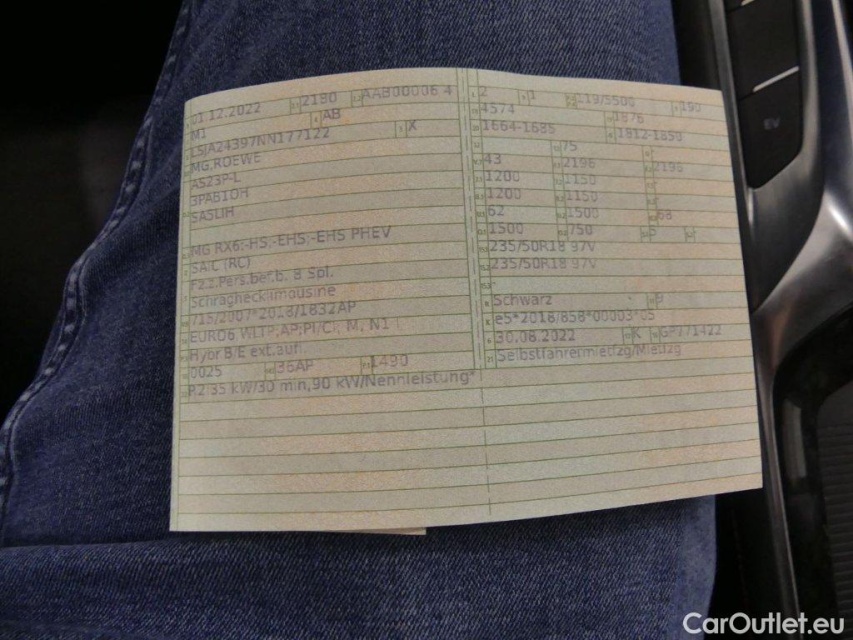 01.12.2022 2180 AAB00006 4
M1 AB
LSJA24397NN177122 X
MG,ROEWE
AS23P-L
3PAB1OH
SA5LIH
MG RX6;-HS,-EHS,-EHS PHEV
SAIC (RC)
Fz.z.Pers.bef.b. 8 Spl.
Schräghecklimousine
715/2007*2018/1832AP
EURO6 WLTP,AP;PI/CI; M, N1 I
Hyor B/E ext.aufl
0025 36AP 1490
P.2:35 kW/30 min,90 kW/Nennleistung*
2 1 119/5500 190
4574 1876
1664-1685 1812-1859
75
43 2196 2196
1200 1150
1200 1150
62 1500 68
1500 750 P
235/50R18 97V
235/50R18 97V
Schwarz P
e5*2018/858*00003*05
30.08.2022 K GP771422
Selbstfahrermietfzg/Mietfzg
EV
CarOutlet.eu